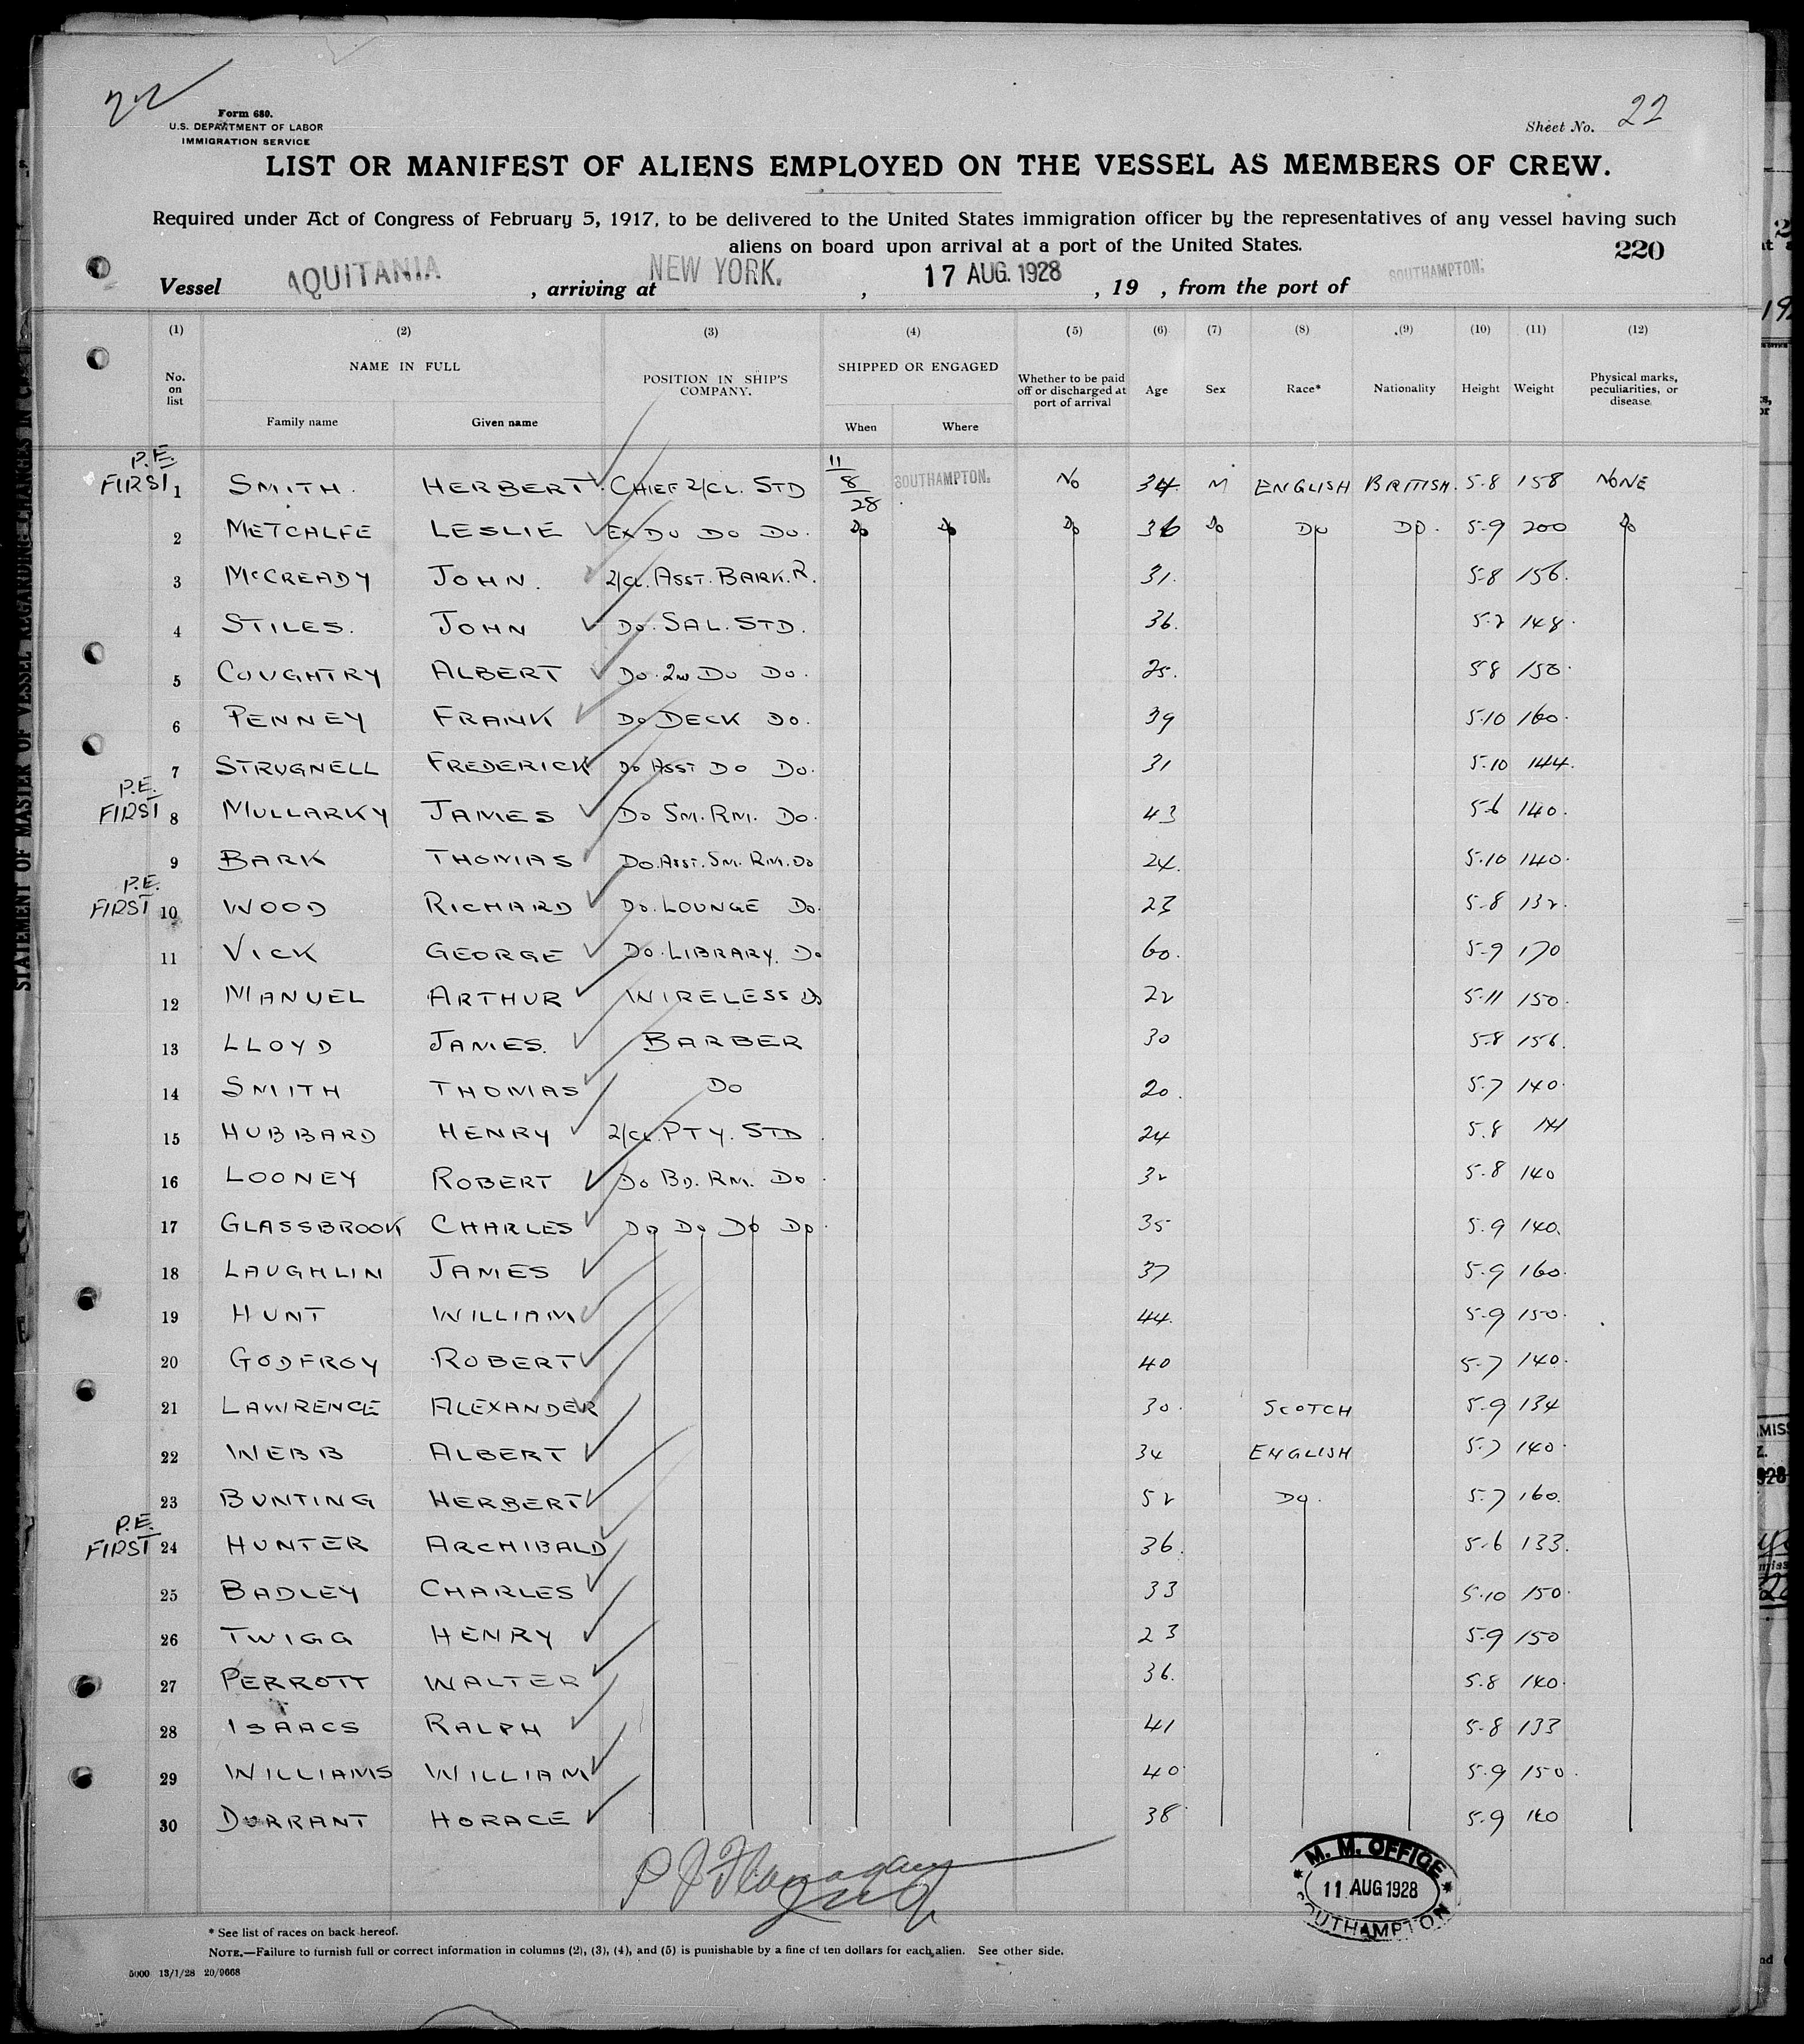 22
Form 680.
U.S. DEPARTMENT OF LABOR
IMMIGRATION SERVICE
Sheet No. 22
LIST OR MANIFEST OF ALIENS EMPLOYED ON THE VESSEL AS MEMBERS OF CREW.
Required under Act of Congress of February 5, 1917, to be delivered to the United States immigration officer by the representatives of any vessel having such
aliens on board upon arrival at a port of the United States.
220
Vessel AQUITANIA, arriving at NEW YORK., 17 AUG. 1928, 19 , from the port of SOUTHAMPTON.
(1) (2) (3) (4) (5) (6) (7) (8) (9) (10) (11) (12)
No. on list NAME IN FULL Family name Given name POSITION IN SHIP'S COMPANY. SHIPPED OR ENGAGED When Where Whether to be paid off or discharged at port of arrival Age Sex Race* Nationality Height Weight Physical marks, peculiarities, or disease.
P.E. FIRST 1 SMITH. HERBERT. CHIEF 2/CL. STD 11/8/28 SOUTHAMPTON. No 34. M ENGLISH BRITISH. 5-8 158 NONE
2 METCALFE LESLIE EX DO DO DO. DO DO DO 36 DO DO DO. 5-9 200 DO
3 McCREADY JOHN. 2/CL. ASST. BARK.R. 31. 5-8 156.
4 STILES. JOHN DO. SAL. STD. 36. 5-2 148.
5 COUGHTRY ALBERT DO. 2ND DO DO. 25. 5-8 150.
6 PENNEY FRANK DO DECK DO. 39 5-10 160.
7 STRUGNELL FREDERICK DO ASST DO DO. 31 5-10 144.
P.E. FIRST 8 MULLARKY JAMES DO SM. RM. DO. 43 5-6 140.
9 BARK THOMAS DO. ASST. SM. RM. DO 24. 5-10 140.
P.E. FIRST 10 WOOD RICHARD DO. LOUNGE DO. 23 5-8 132.
11 VICK GEORGE DO. LIBRARY. DO 60. 5-9 170
12 MANUEL ARTHUR WIRELESS DO 22 5-11 150.
13 LLOYD JAMES. BARBER 30 5-8 156.
14 SMITH THOMAS DO 20. 5-7 140.
15 HUBBARD HENRY 2/CL. PTY. STD 24 5-8 141
16 LOONEY ROBERT DO BD. RM. DO 32 5-8 140
17 GLASSBROOK CHARLES DO DO DO DO. 35 5-9 140.
18 LAUGHLIN JAMES 37 5-9 160.
19 HUNT WILLIAM 44. 5-9 150.
20 GODFROY ROBERT 40 5-7 140.
21 LAWRENCE ALEXANDER 30. SCOTCH 5-9 134
22 WEBB ALBERT 34 ENGLISH 5-7 140.
23 BUNTING HERBERT 52 DO. 5-7 160.
P.E. FIRST 24 HUNTER ARCHIBALD 36. 5-6 133.
25 BADLEY CHARLES 33 5-10 150.
26 TWIGG HENRY 23 5-9 150
27 PERROTT WALTER 36. 5-8 140.
28 ISAACS RALPH 41 5-8 133
29 WILLIAMS WILLIAM 40 5-9 150.
30 DURRANT HORACE 38 5-9 160
P J Flanagan
M. M. OFFICE
11 AUG 1928
SOUTHAMPTON
* See list of races on back hereof.
NOTE.—Failure to furnish full or correct information in columns (2), (3), (4), and (5) is punishable by a fine of ten dollars for each alien. See other side.
5000 13/1/28 20/9668